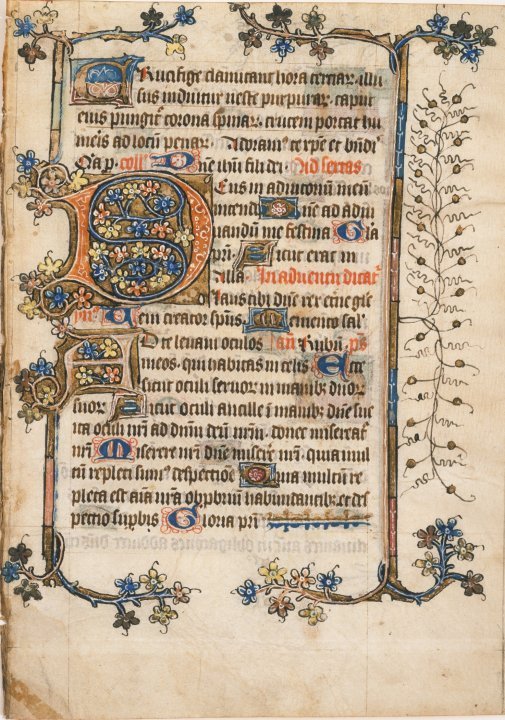 Crucifige clamitant hora terciar. illu
sus induitur ueste purpurar. caput
eius pungit corona spinar. crucem portat hu
meris ad locū penar. Adoramꝰ te xp̄e et bn̄di
Oīa p. coll. Dn̄e ihū fili dei Ad sextas
Deus in adiutoriū meū
intende Dn̄e ad adiu
uandū me festina Gl̄a
pr̄i. Sicut erat in
Alla. Pr aduentū dicat̄
Laus tibi dn̄e rex et̄ne glo
Uem creator sp̄us. Memento sal.
Ad te leuaui oculos Rubr̄. ps
meos. qui habitas in celis Ecce
sicut oculi seruor in manibꝫ dnōr
suor Sicut oculi ancille ī manibꝫ dn̄e sue
ita oculi nr̄i ad dn̄m deū nr̄m. donec misereat̄
nr̄i Miserere nr̄i dn̄e misere nr̄i. quia mul
tū repleti sumꝰ despectiōe Quia multū re
pleta est aīa nr̄a obp̄briū habundantibꝫ et des
pectio sup̄bis Gloria pr̄i